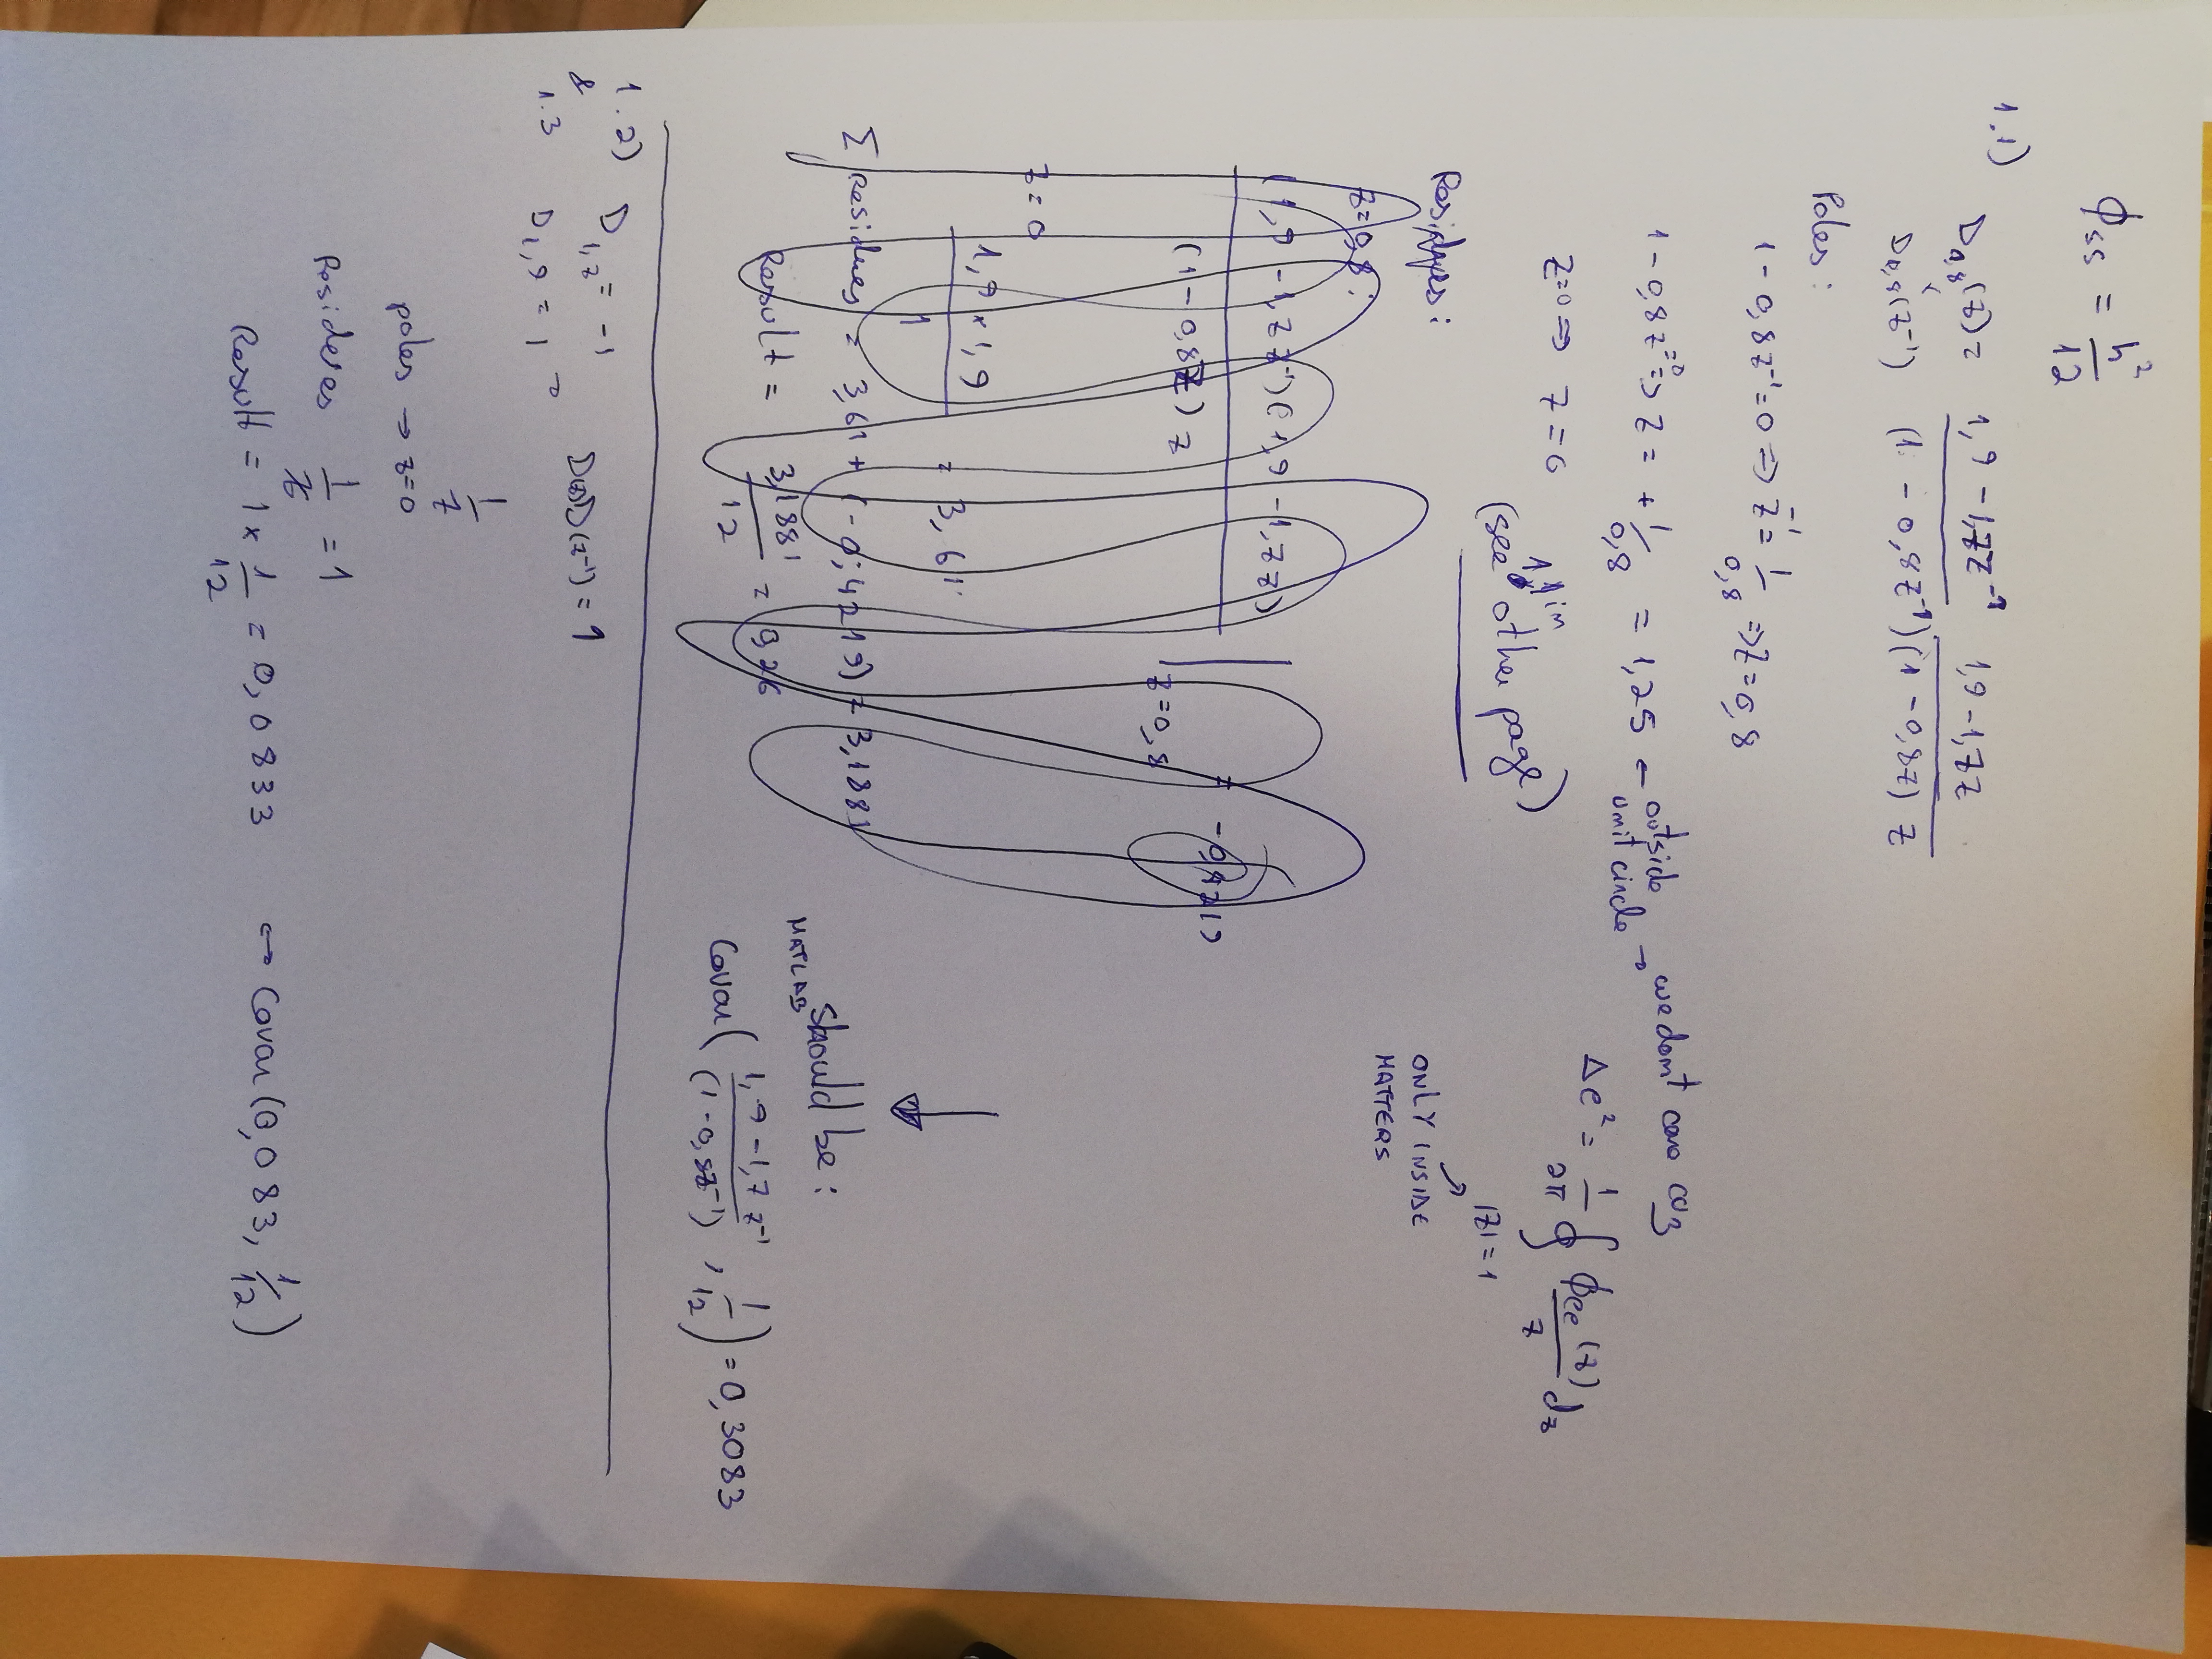 ϕss = h² / 12
1.1)
D0,8(z) = 1,9 - 1,7z⁻¹   1,9 - 1,7z
D0,8(z⁻¹)   (1 - 0,8z⁻¹)(1 - 0,8z) z
Poles:
1 - 0,8z⁻¹ = 0 => z⁻¹ = 1/0,8 => z = 0,8
1 - 0,8z = 0 => z = + 1/0,8 = 1,25 ← outside unit circle → we don't care coz
Δe² = 1/2π ∮ ϕee(z)/z dz
|z| = 1
ONLY INSIDE
MATTERS
z=0 => z = 0
(see 1.1 in other page)
Residues:
z=0,8:
(1,9 - 1,7z⁻¹)(1,9 - 1,7z) / (1 - 0,8z) z | z=0,8 = -0,4219
z = 0
1,9 × 1,9 / 1 = 3,61
Σ Residues = 3,61 + (-0,4219) = 3,1881
Result = 3,1881 / 12 = 0,26
↓
MATLAB should be:
Covar( 1,9 - 1,7z⁻¹ / (1 - 0,8z⁻¹) , 1/12 ) = 0,3083
1.2) D1,7 = -1   D(z)D(z⁻¹) = 1
&
1.3 D1,9 = 1
1/z
poles → z=0
Residues 1/z = 1
Result = 1 × 1/12 = 0,0833 ↔ Covar(0,083, 1/12)